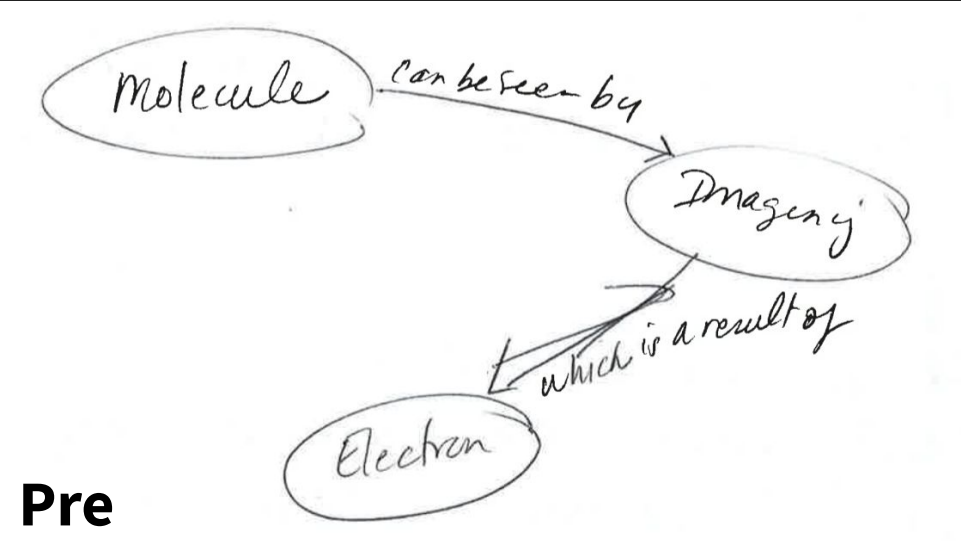 Molecule
can be seen by
Imaging
which is a result of
Electron
Pre